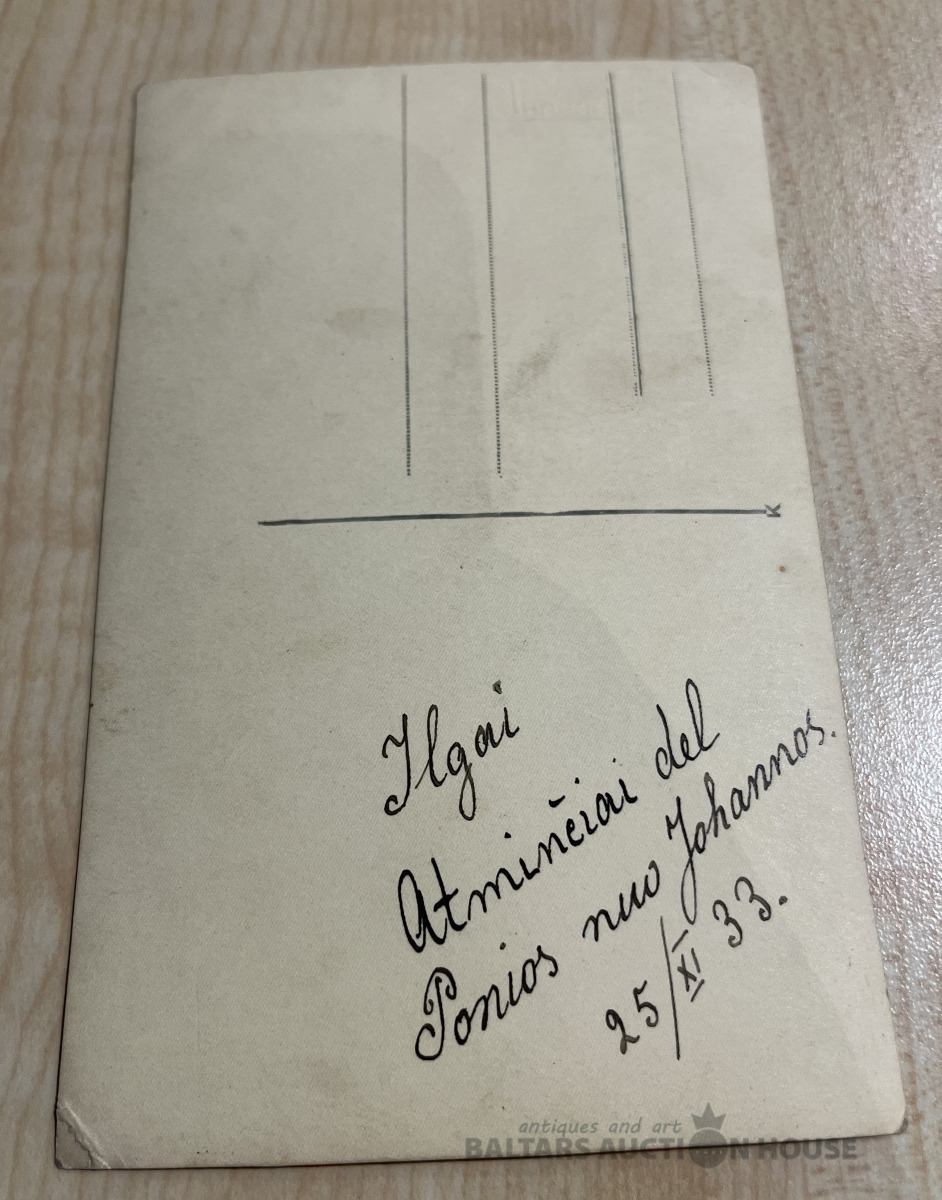 Ilgai
Atminčiai del
Ponios nuo Johannos.
25/XI 33.
K
antiques and art
BALTARS AUCTION HOUSE